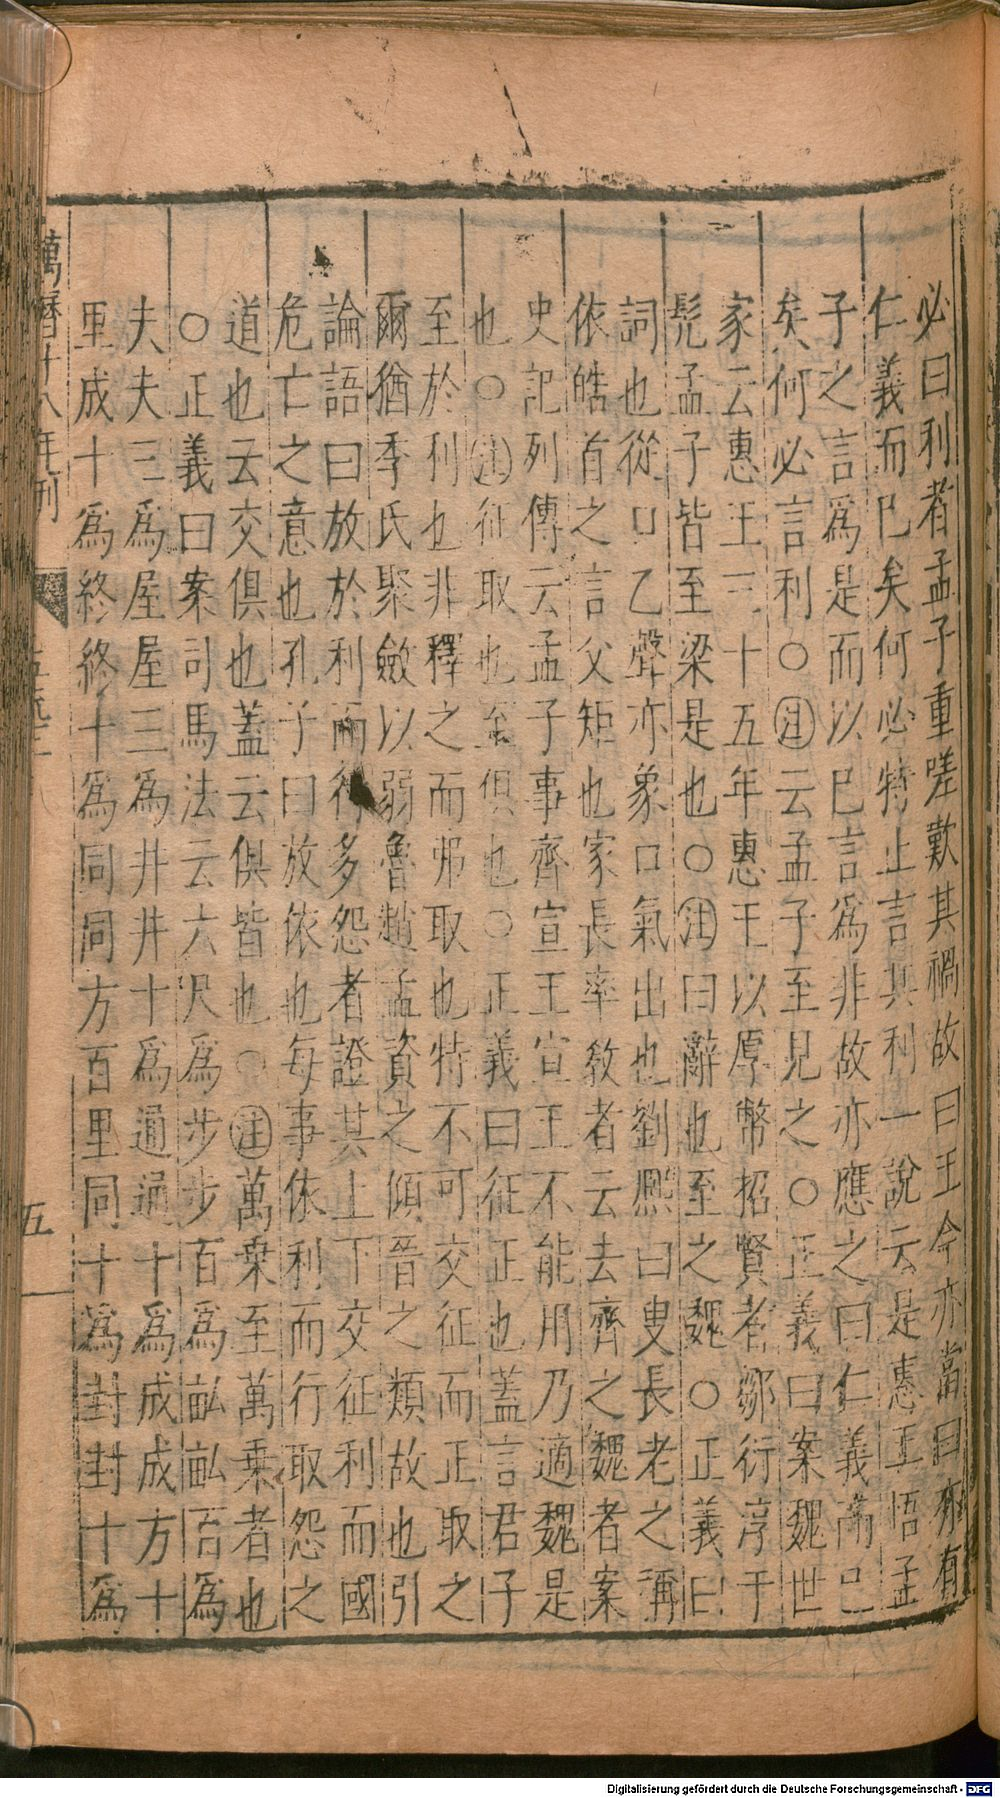 必曰利者孟子重嗟歎其禍故曰王今亦當曰亦有
仁義而巳矣何必特止言其利一說云是惠王悟孟
子之言爲是而以巳言爲非故亦應之曰仁義而巳
矣何必言利○注云孟子至見之○正義曰案魏世
家云惠王三十五年惠王以厚幣招賢者鄒衍淳于
髠孟子皆至梁是也○注曰辭也至之魏○正義曰
詞也從口乙聲亦象口氣出也劉熙曰叟長老之稱
依皓首之言父矩也家長率敎者云去齊之魏者案
史記列傳云孟子事齊宣王宣王不能用乃適魏是
也○注征取也至俱也○正義曰征正也蓋言君子
至於利也非釋之而弗取也特不可交征而正取之
爾猶季氏聚斂以弱魯趙孟資之傾晉之類故也引
論語曰放於利而行多怨者證其上下交征利而國
危亡之意也孔子曰放依也每事依利而行取怨之
道也云交俱也蓋云俱皆也○注萬乗至萬乗者也
○正義曰案司馬法云六尺爲步步百爲畝畝百爲
夫夫三爲屋屋三爲井井十爲通通十爲成成方十
里成十爲終終十爲同同方百里同十爲封封十爲
萬曆十八年刊
五
Digitalisierung gefördert durch die Deutsche Forschungsgemeinschaft - DFG